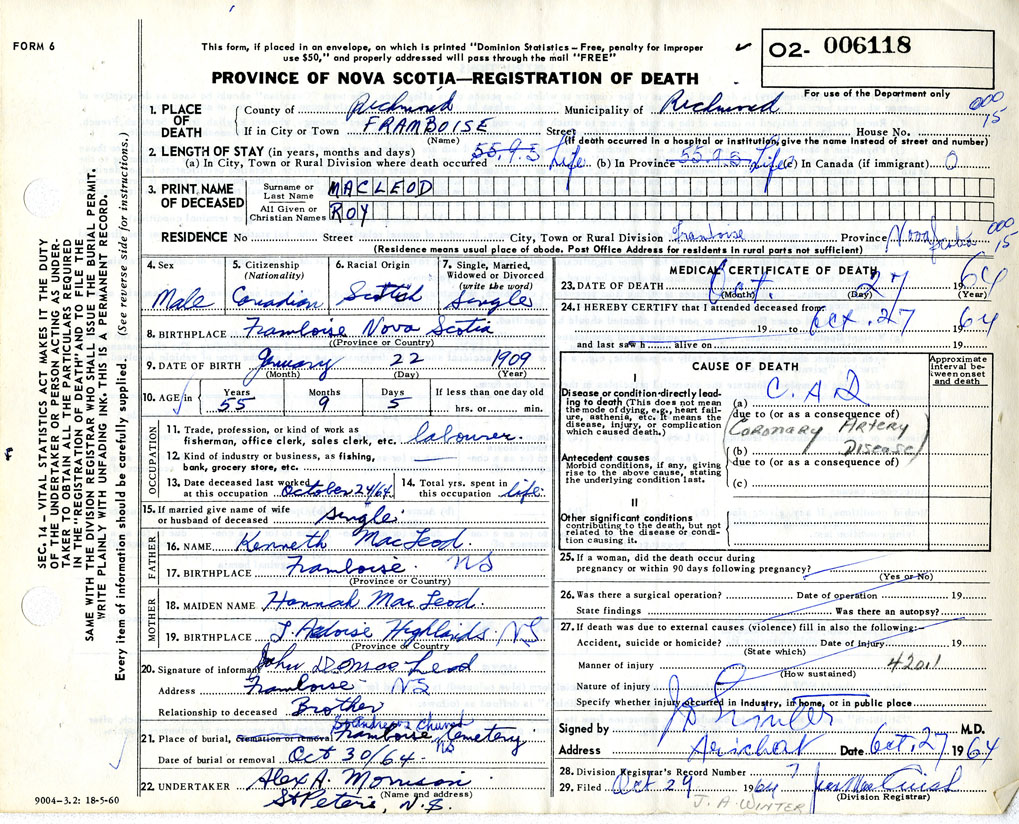 FORM 6
This form, if placed in an envelope, on which is printed "Dominion Statistics – Free, penalty for improper
use $50," and properly addressed will pass through the mail "FREE"
O2- 006118
For use of the Department only
PROVINCE OF NOVA SCOTIA—REGISTRATION OF DEATH
000
15
1. PLACE OF DEATH
County of Richmond Municipality of Richmond
If in City or Town FRAMBOISE Street House No.
(Name) (If death occurred in a hospital or institution, give the name instead of street and number)
2. LENGTH OF STAY (in years, months and days)
(a) In City, Town or Rural Division where death occurred 55.9.5 Life (b) In Province 55.9.5 Life (c) In Canada (if immigrant) 0
3. PRINT NAME OF DECEASED
Surname or Last Name MACLEOD
All Given or Christian Names ROY
RESIDENCE No Street City, Town or Rural Division Framboise Province Nova Scotia
000
15
(Residence means usual place of abode. Post Office Address for residents in rural parts not sufficient)
4. Sex Male
5. Citizenship (Nationality) Canadian
6. Racial Origin Scotch
7. Single, Married, Widowed or Divorced (write the word) Single
8. BIRTHPLACE Framboise Nova Scotia
(Province or Country)
9. DATE OF BIRTH January 22 1909
(Month) (Day) (Year)
10. AGE in Years 55 Months 9 Days 5 If less than one day old hrs. or min.
OCCUPATION
11. Trade, profession, or kind of work as
fisherman, office clerk, sales clerk, etc. labourer.
12. Kind of industry or business, as fishing,
bank, grocery store, etc.
13. Date deceased last worked
at this occupation October 24/64
14. Total yrs. spent in
this occupation life.
15. If married give name of wife
or husband of deceased Single.
FATHER
16. NAME Kenneth MacLeod.
17. BIRTHPLACE Framboise. NS
(Province or Country)
MOTHER
18. MAIDEN NAME Hannah MacLeod.
19. BIRTHPLACE Highlands NS
(Province or Country)
20. Signature of informant John
Address Framboise NS
Relationship to deceased Brother
St Andrews Church
21. Place of burial, Cremation or removal Framboise Cemetery
NS
Date of burial or removal Oct 30/64.
22. UNDERTAKER Alex A. Morrison.
(Name and address)
St Peters, N.S.
9004-3.2: 18-5-60
MEDICAL CERTIFICATE OF DEATH
23. DATE OF DEATH Oct. 27 1964
(Month) (Day) (Year)
24. I HEREBY CERTIFY that I attended deceased from:
19 to Oct. 27 1964
and last saw h alive on 19
CAUSE OF DEATH
Approximate interval between onset and death
I
Disease or condition directly leading to death (This does not mean the mode of dying, e.g., heart failure, asthenia, etc. It means the disease, injury, or complication which caused death.)
(a) C.A.D
due to (or as a consequence of)
(Coronary Artery
(b) Disease)
due to (or as a consequence of)
(c)
Antecedent causes
Morbid conditions, if any, giving rise to the above cause, stating the underlying condition last.
II
Other significant conditions
contributing to the death, but not related to the disease or condition causing it.
25. If a woman, did the death occur during
pregnancy or within 90 days following pregnancy?
(Yes or No)
26. Was there a surgical operation? Date of operation 19
State findings Was there an autopsy?
27. If death was due to external causes (violence) fill in also the following:
Accident, suicide or homicide? Date of injury 19
(State which)
Manner of injury 4201
(How sustained)
Nature of injury
Specify whether injury occurred in industry, in home, or in public place
Signed by M.D.
Address Arichat Date Oct. 27 1964
28. Division Registrar's Record Number 7
29. Filed Oct 29 1964
(Division Registrar)
J. A. WINTER
SEC. 14 – VITAL STATISTICS ACT MAKES IT THE DUTY
OF THE UNDERTAKER OR PERSON ACTING AS UNDER-
TAKER TO OBTAIN ALL THE PARTICULARS REQUIRED
IN THE "REGISTRATION OF DEATH" AND TO FILE THE
SAME WITH THE DIVISION REGISTRAR WHO SHALL ISSUE THE BURIAL PERMIT.
WRITE PLAINLY WITH UNFADING INK. THIS IS A PERMANENT RECORD.
Every item of information should be carefully supplied. (See reverse side for instructions.)